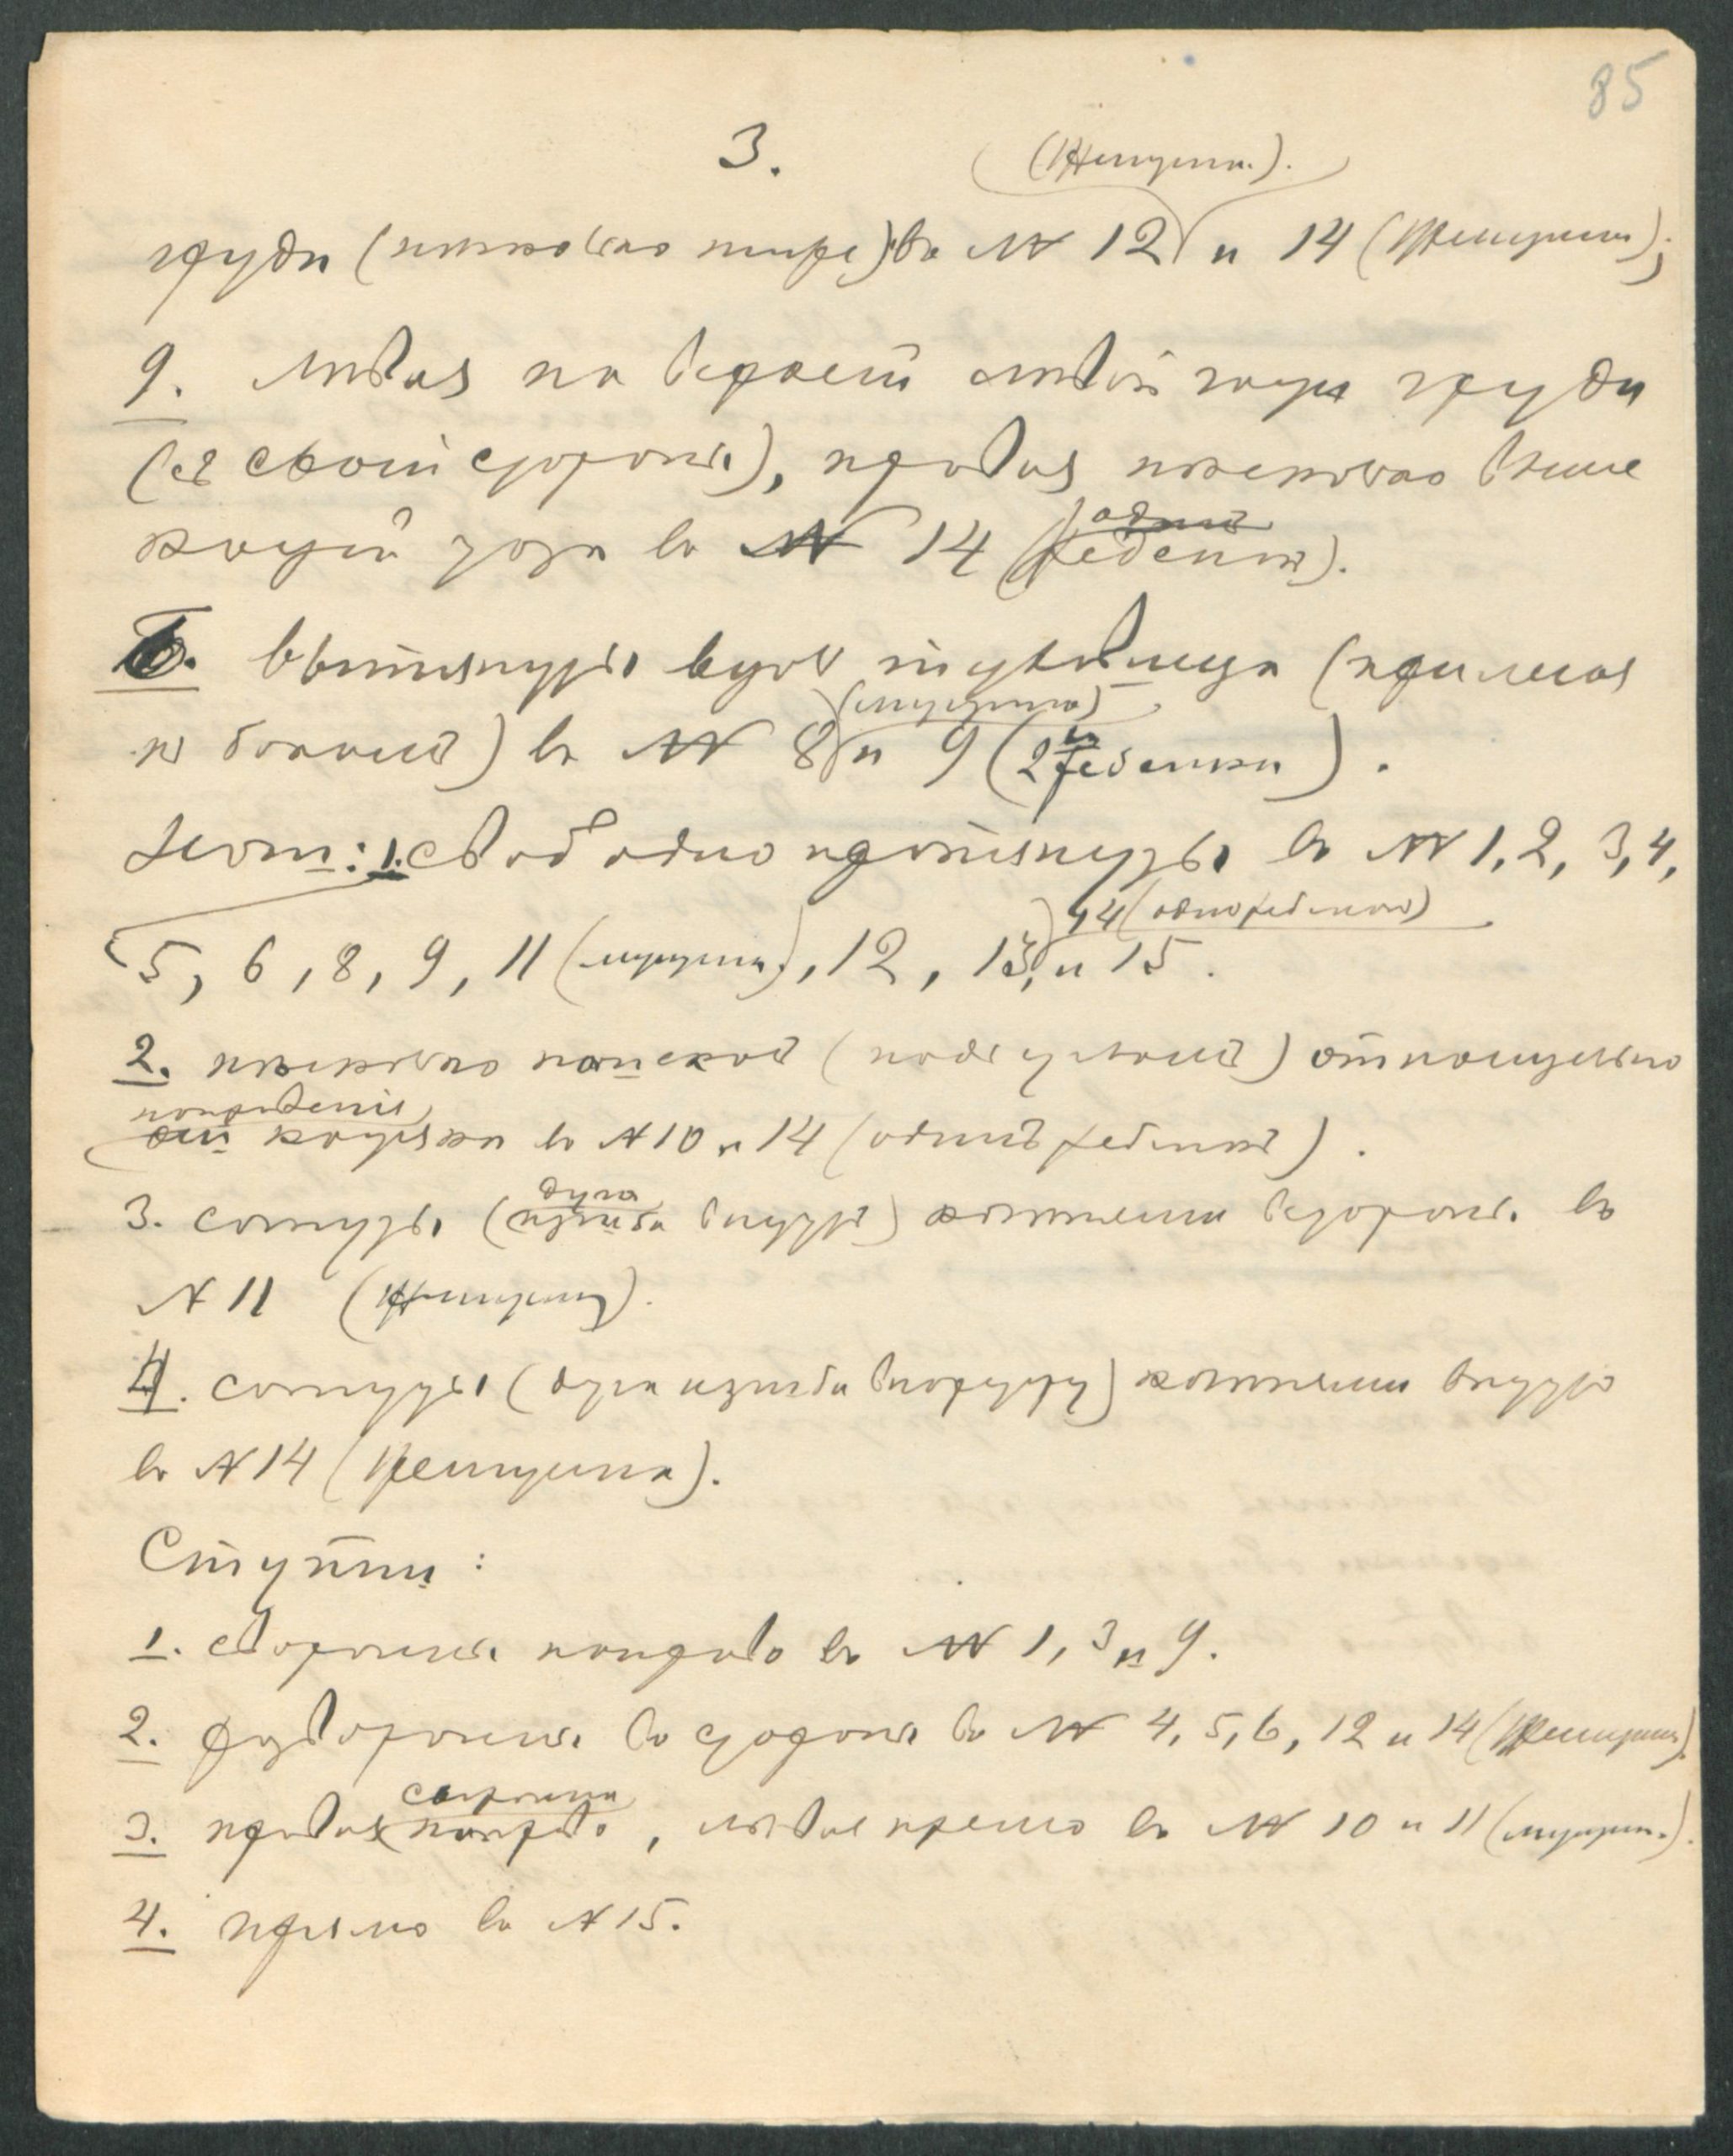 85
3.
(Женщина.).
груди (несколько шире) въ №№ 12 и 14 (Женщина);
9. лѣвая на верхней лѣвой части груди
(съ своей стороны), правая несколько выше
костей таза въ №№ 14 (одинъ ребенокъ).
Б. вытянуты вдоль туловища (прилегая
(мужчина)
къ бокамъ) въ №№ 8 и 9 (2й ребенокъ).
Ноги: 1. свободно протянуты въ №№ 1, 2, 3, 4,
14 (одинъ ребенокъ)
5, 6, 8, 9, 11 (мужчина), 12, 13, и 15.
2. несколько (подъ угломъ) относительно
направленія
костяка въ № 10 и 14 (одинъ ребенокъ).
дуга
3. согнуты (изгиба внутрь) колѣнями въ
№ 11 (Женщина).
4. согнуты (дуга изгиба наружу) колѣнями внутрь
въ № 14 (Женщина).
Ступни:
1. своронены направо въ №№ 1, 3 и 9.
2. разворочены въ стороны въ №№ 4, 5, 6, 12 и 14 (Женщина).
3. правая направо, лѣвая прямо въ №№ 10 и 11 (мужчин.).
4. прямо въ № 15.